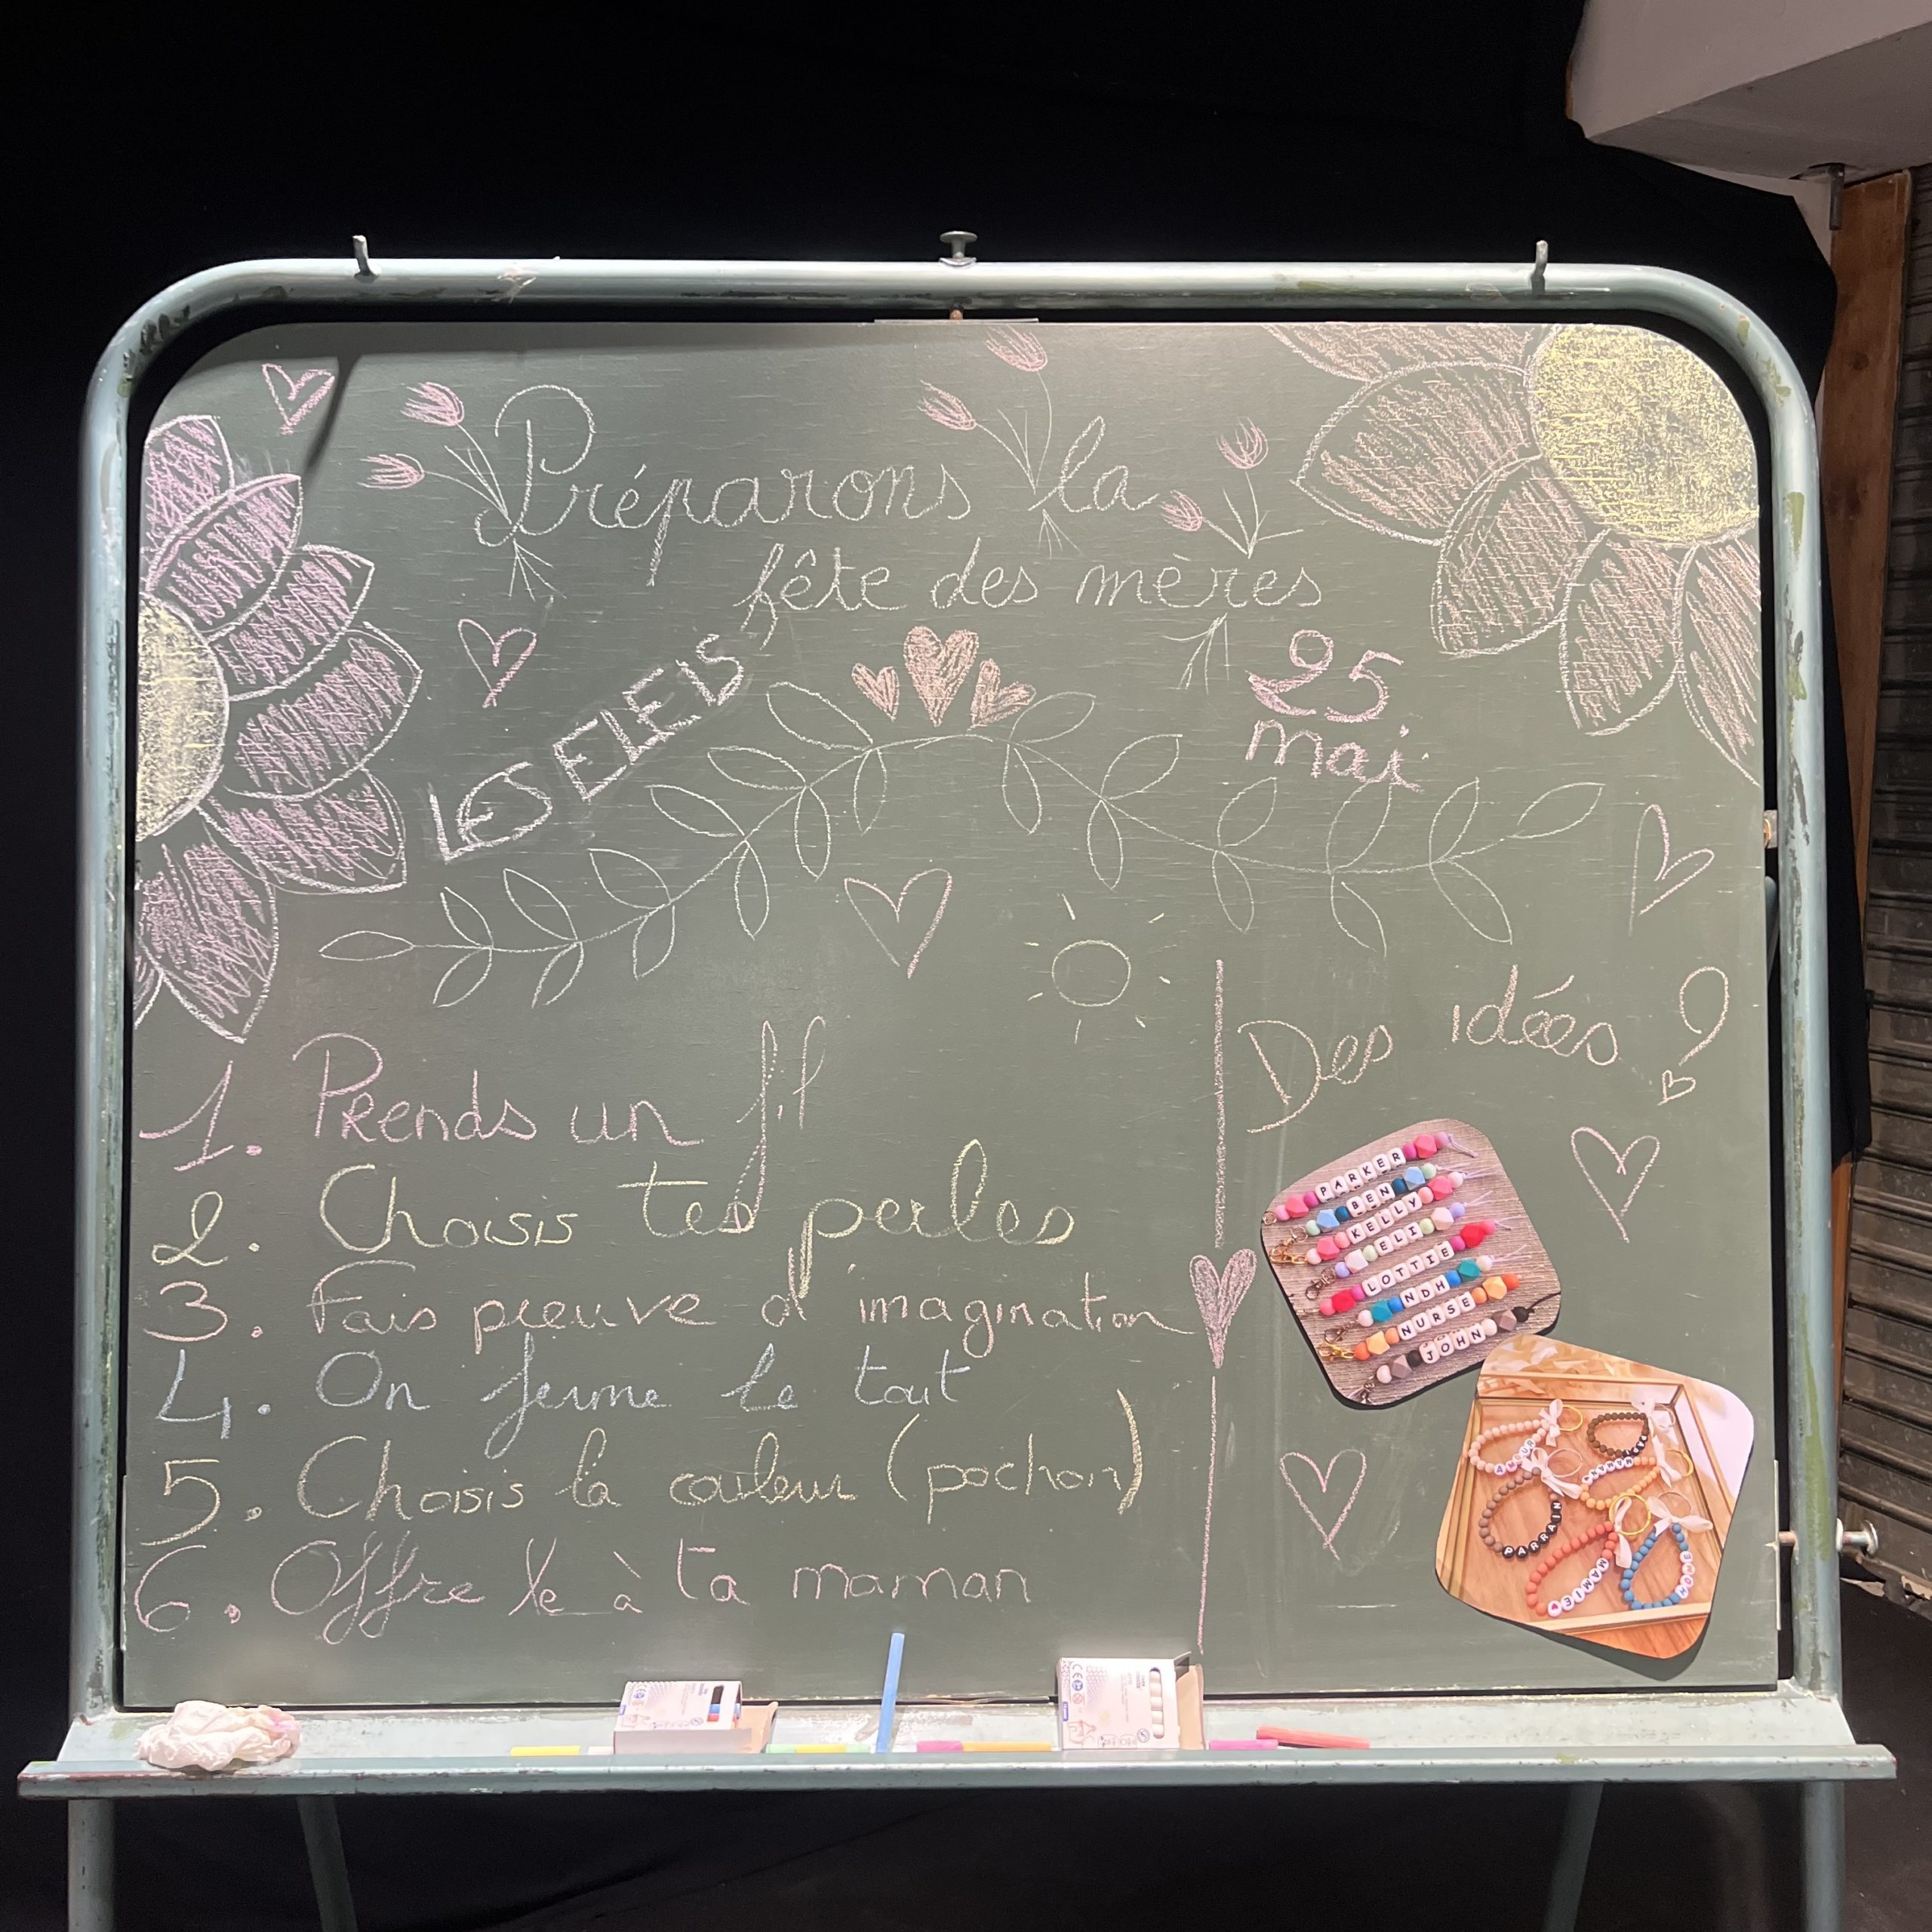 Préparons la
fête des mères
25
mai
LES
Des idées ?
1. Prends un fil
2. Choisis tes perles
3. Fais preuve d'imagination
4. On ferme le tout
5. Choisis la couleur (pochon)
6. Offre le à ta maman
PARKER
BEN
KELLY
ELI
LOTTIE
NDH
NURSE
JOHN
AMOUR
PARRAIN
MAMIE